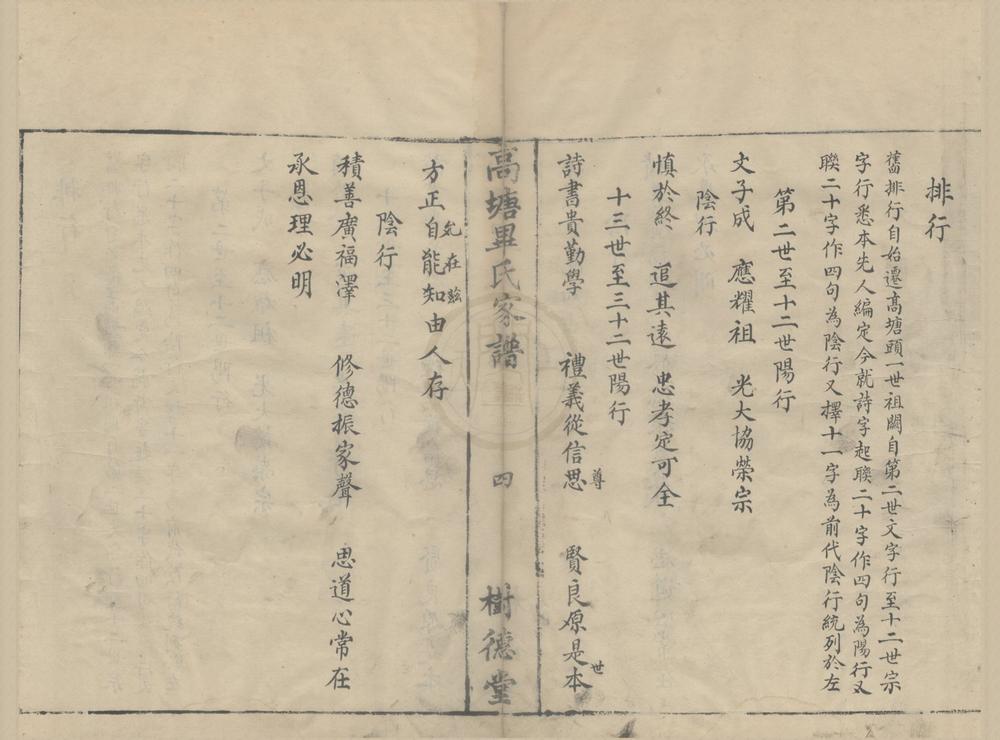 排行
舊排行自始遷高塘頭一世祖闕自第二世文字行至十二世宗
字行悉本先人編定今就詩字起聯二十字作四句為陽行又
聯二十字作四句為陰行又擇十一字為前代陰行統列於左
第二世至十二世陽行
文子成 應耀祖 光大協榮宗
陰行
慎於終 追其遠 忠孝定可全
十三世至三十二世陽行
詩書貴勤學 禮義從信思尊 賢良原是本世
高塘畢氏家譜 四 樹德堂
方正自能知由人存
允在茲
陰行
積善廣福澤 修德振家聲 思道心常在
承恩理必明